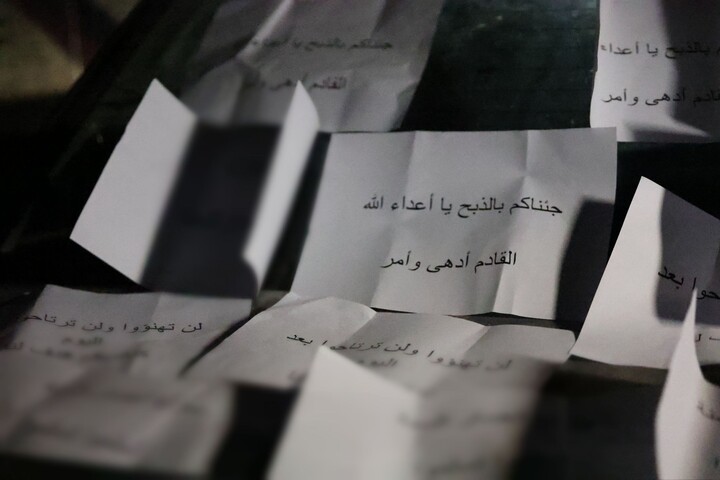 جئناكم بالذبح يا أعداء
القادم أدهى وأمر
بالذبح يا أعداء
القادم أدهى وأمر
جئناكم بالذبح يا أعداء الله
القادم أدهى وأمر
لن تهنؤوا ولن ترتاحوا
اليوم
لن تهنؤوا ولن ترتاحوا بعد
اليوم
بعد